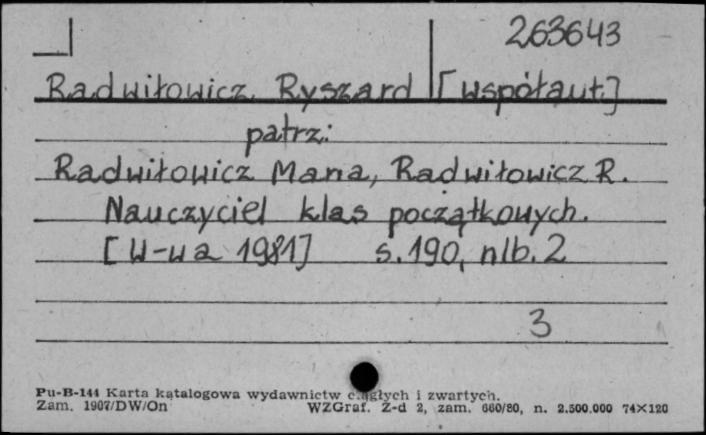 263643
Radwiłowicz, Ryszard [współaut.]
patrz:
Radwiłowicz Maria, Radwiłowicz R.
Nauczyciel klas początkowych.
[W-wa 1981] s. 190, nlb. 2
3
Pu-B-144 Karta katalogowa wydawnictw ciągłych i zwartych.
Zam. 1907/DW/On WZGraf. Z-d 2, zam. 660/80, n. 2.500.000 74×120